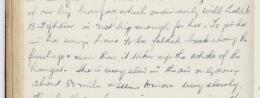 of our big hangar which ordinarily will hold 6
B. fighters is not big enough for her. To get her
in her wings have to be folded back along the
fuselage & even then it takes up the whole of the
hangar. She is very slow in the air only doing
about 80 mls & seems to move very slowly.